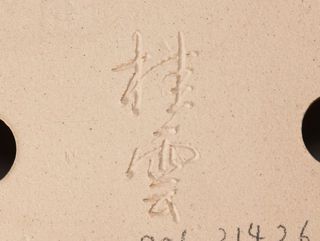 桂雲
21426